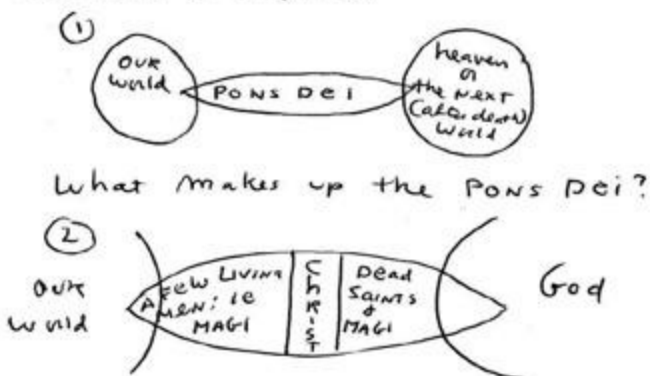 ①
our
world
PONS DEI
heaven
or
the next
(after death)
world
What makes up the PONS Dei?
②
our
world
A FEW LIVING
MEN: ie
MAGI
ChRIST
Dead
SAINTS
&
MAGI
God